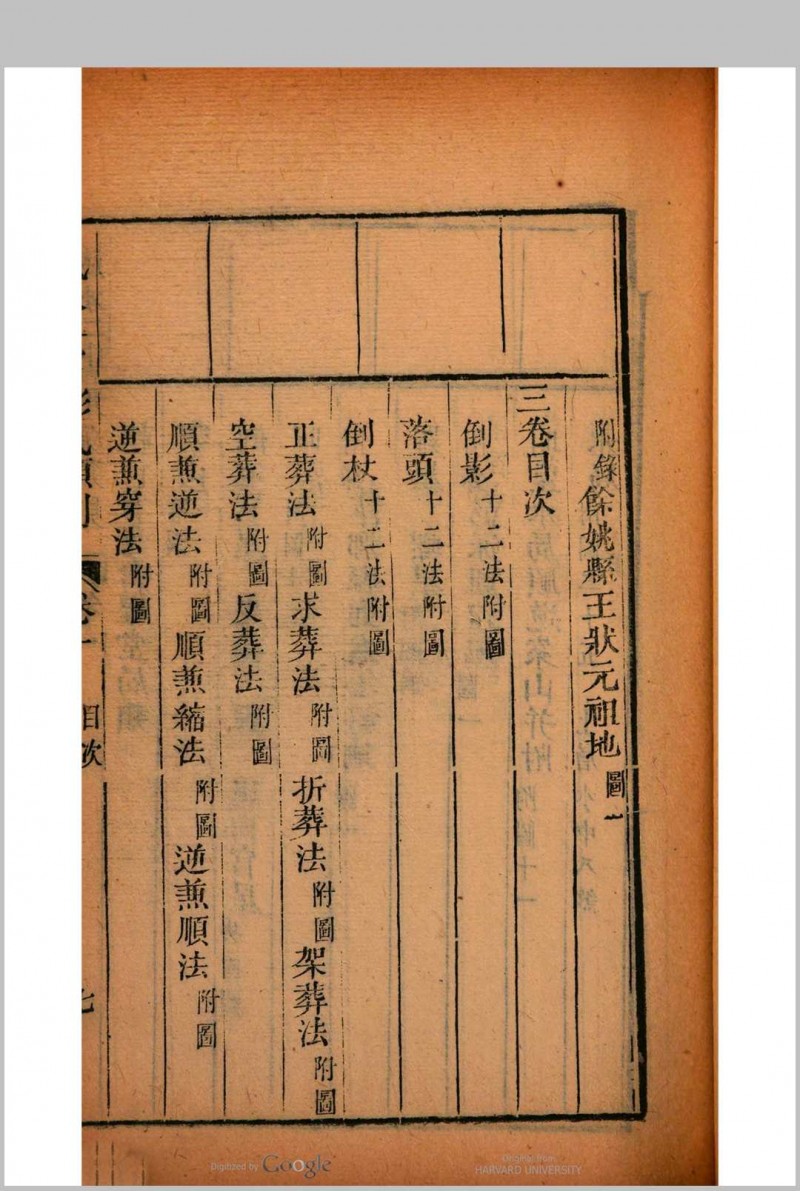 附錄餘姚縣王狀元祖地圖一
三卷目次
倒影十二法附圖
落頭十二法附圖
倒杖十二法附圖
正葬法附圖求葬法附圖折葬法附圖架葬法附圖
空葬法附圖反葬法附圖
順兼逆法附圖順兼縮法附圖逆兼順法附圖
逆兼穿法附圖
卷一 目次 七
Digitized by Google
Original from
HARVARD UNIVERSITY